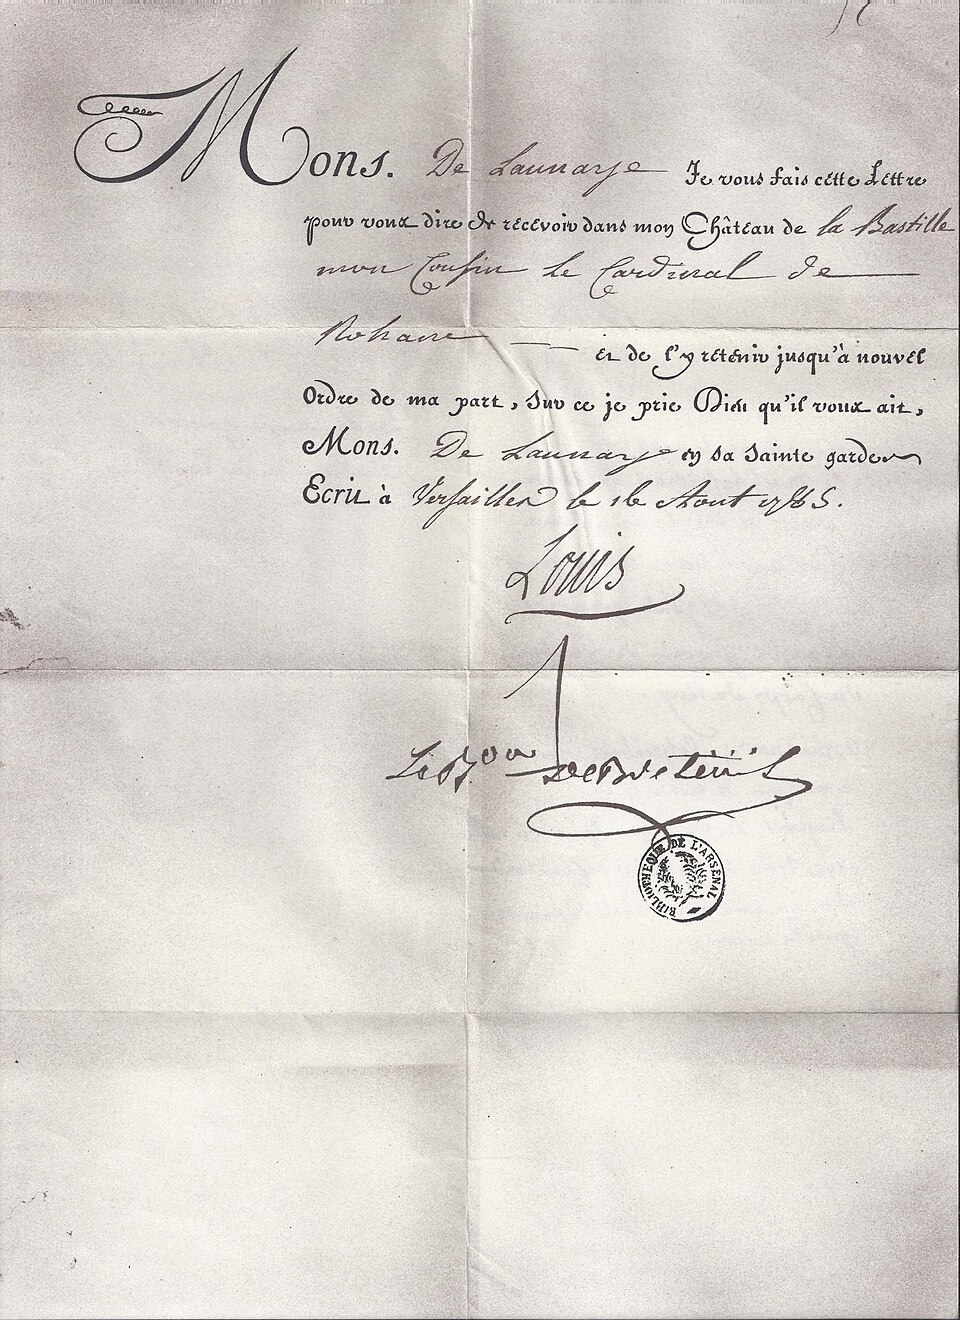 Mons. De Launaye Je vous fais cette Lettre
pour vous dire de recevoir dans mon Château de la Bastille
mon Cousin le Cardinal de
Rohan et de l'y retenir jusqu'à nouvel
Ordre de ma part, Sur ce je prie Dieu qu'il vous ait,
Mons. De Launaye en sa sainte garde
Ecrit à Versailles le 16 Aout 1785.
Louis
Le Bon de Breteuil
BIBLIOTHEQUE DE L'ARSENAL